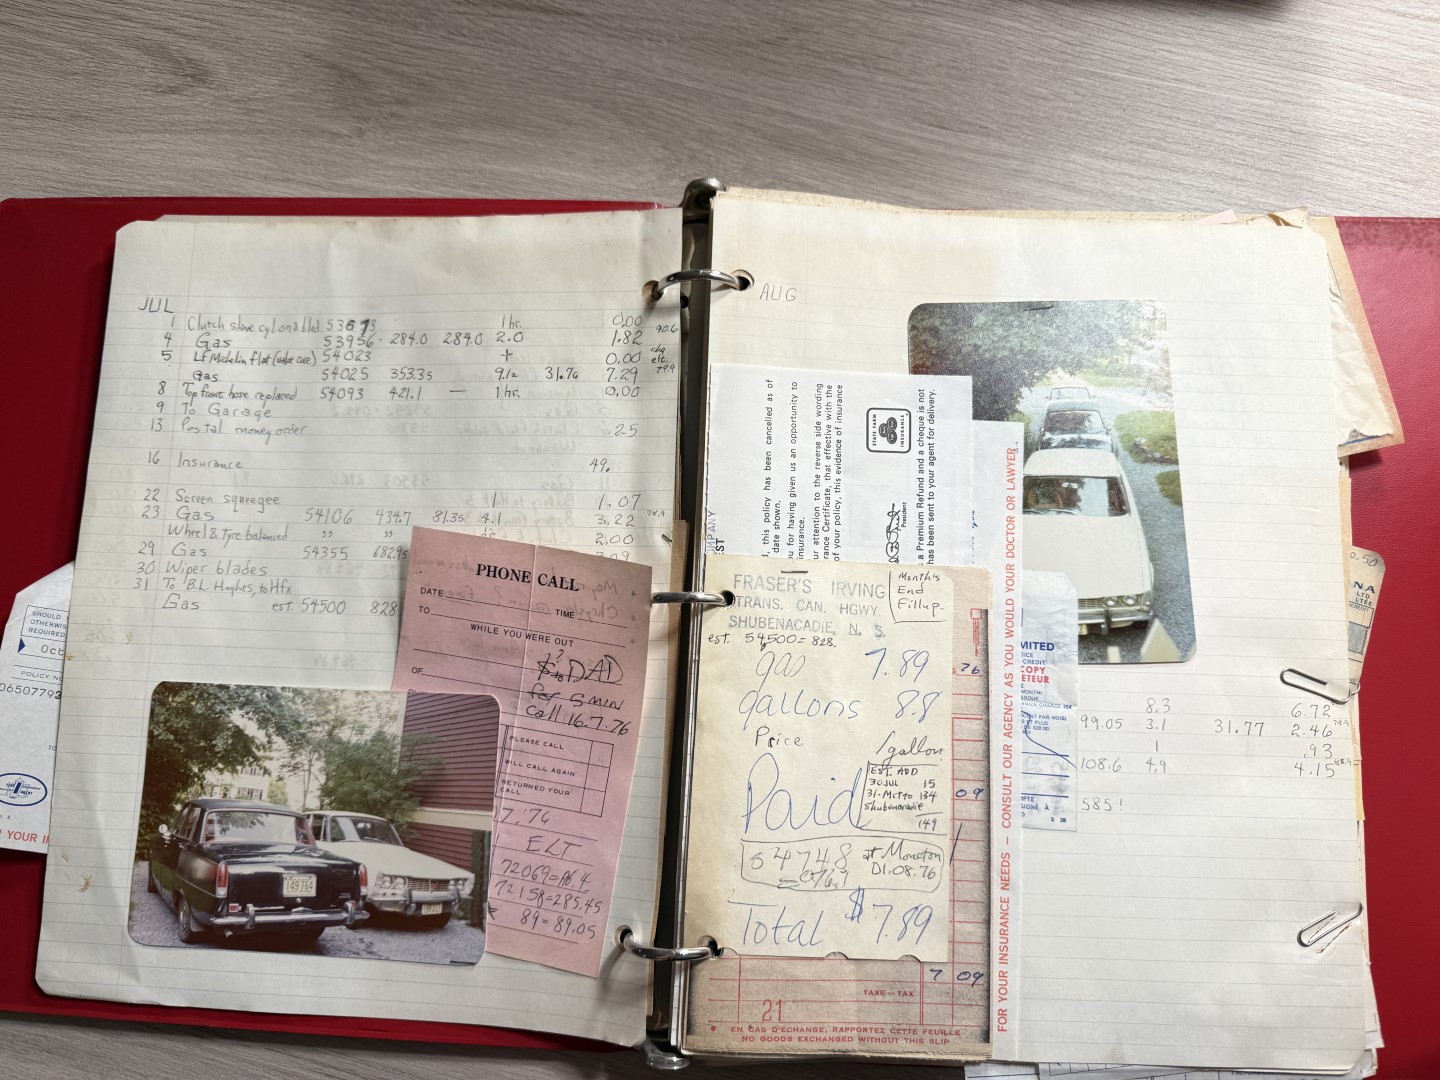 JUL
1 Clutch slave cyl on & bled 53675 1 hr. 0.00
4 Gas 53956 284.0 284.0 2.0 1.82 90.6
5 Lf Michelin flat (valve core) 54023 + 0.00 chq
Gas 54025 353.35 9.12 31.76 7.29 79.9
8 Top front hose replaced 54093 421.1 — 1 hr. 0.00
9 To Garage
13 Postal money order .25
16 Insurance 49.
22 Screen squeegee 1 1.07
23 Gas 54106 434.7 81.35 4.1 3.22 78.9
Wheel & Tyre balanced " " 2.00
29 Gas 54355 682.95
30 Wiper blades
31 To B.L. Hughes, to Hfx
Gas est. 54500 828
SHOULD
OTHERWIS
REQUIRED
Oct
POLICY NO
06507793
TO
YOUR IN
PHONE CALL
DATE
TO TIME
WHILE YOU WERE OUT
OF
DAD
for 5 MIN
call 16.7.76
PLEASE CALL
WILL CALL AGAIN
RETURNED YOUR
CALL
7.'76
ELT
72069=
72158=285.45
89=89.05
149 764
AUG
this policy has been cancelled as of
date shown.
for having given us an opportunity to
insurance.
attention to the reverse side wording
Certificate, that effective with the
of your policy, this evidence of insurance
President
a Premium Refund and a cheque is not
has been sent to your agent for delivery.
STATE FARM
INSURANCE
FRASER'S IRVING
TRANS. CAN. HGWY.
SHUBENACADIE, N. S.
Month's
End
Fillup.
est. 54500=828.
gas 7.89
gallons 8.8
Price /gallon
Paid
EST. ADD
30 JUL 15
31-Mctto 134
Shubenacadie
149
54748 at Moncton
01.08.76
Total $7.89
.76
09
7 09
TAXE — TAX
21
EN CAS D'ÉCHANGE, RAPPORTEZ CETTE FEUILLE
NO GOODS EXCHANGED WITHOUT THIS SLIP
FOR YOUR INSURANCE NEEDS — CONSULT OUR AGENCY AS YOU WOULD YOUR DOCTOR OR LAWYER
MITED
CREDIT
COPY
ETEUR
8.3 6.72
99.05 3.1 31.77 2.46 78.9
1 .93
108.6 4.9 4.15
585!
0.50
NA
LTD
LTÉE